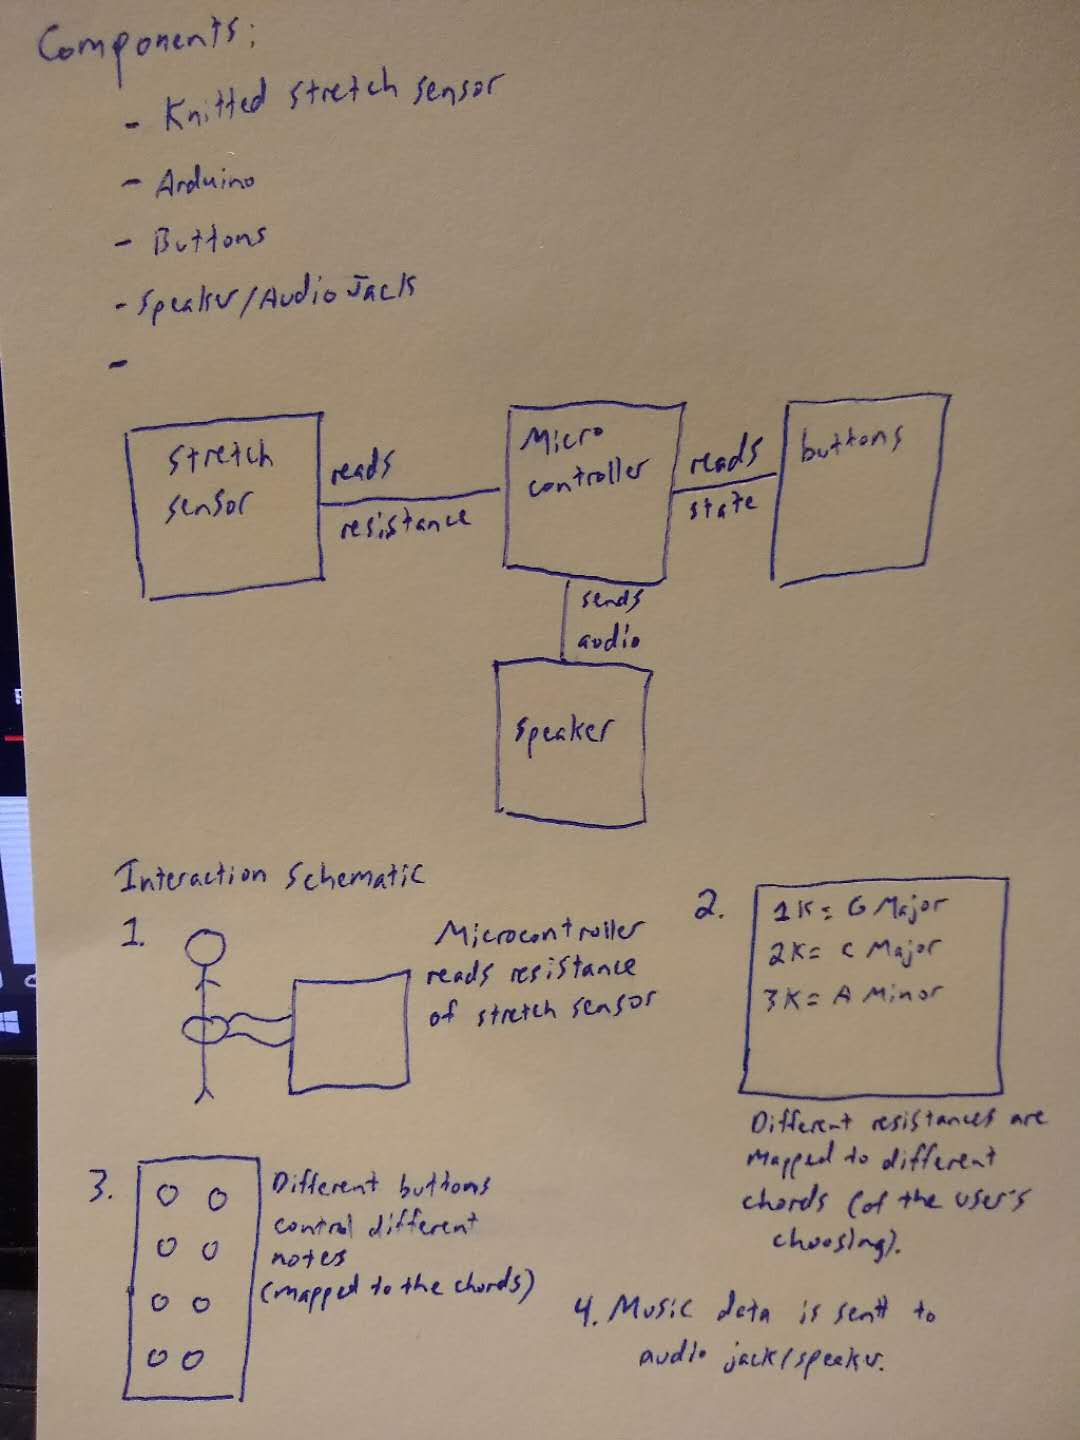 Components:
- Knitted stretch sensor
- Arduino
- Buttons
- Speaker/Audio Jack
-
stretch
sensor
reads
resistance
Micro
controller
reads
state
buttons
sends
audio
speaker
Interaction Schematic
1.
Microcontroller
reads resistance
of stretch sensor
2.
1K = G Major
2K = C Major
3K = A Minor
Different resistances are
mapped to different
chords (of the user's
choosing).
3.
Different buttons
control different
notes
(mapped to the chords)
4. Music data is sent to
audio jack/speaker.